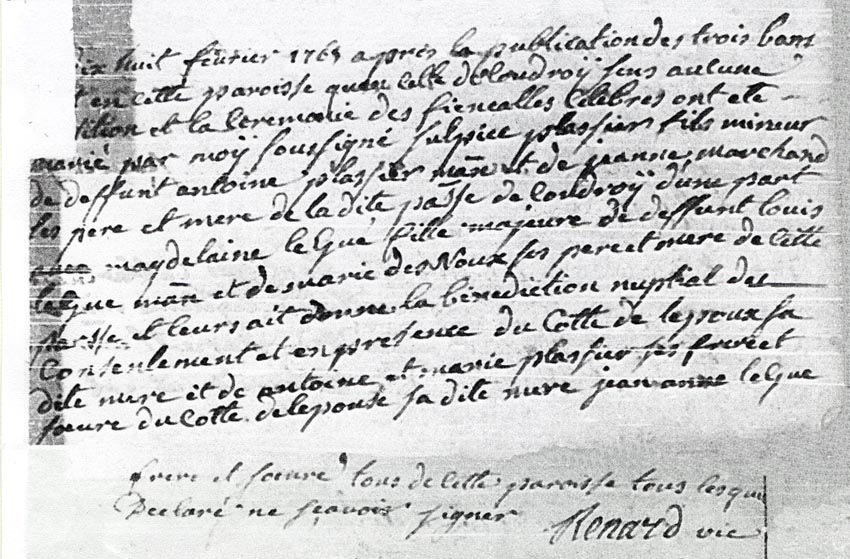 Dix huit fevrier 1765 apres la publication des trois bans
t en cette paroisse quen celle de Coudroÿ sens aucune
sition et la Ceremonie des fiencalles Celebres ont ete
marié par moÿ soussigné sulpice plassier fils mineur
de deffunt antoine plassier mān et de jeanne marchand
ses pere et mere de la dite pāsse de Coudroÿ dune part
magdelaine leGué fille majeure de deffunt louis
leGue mān et de marie des Noux ses pere et mere de cette
parsse et leurs ait donné la bénédiction nuptial du
Consentement et en presence du Cotté de lepoux sa
dite mere et de antoine et marie plassier ses frere et
sœure du Cotté de lepouse sa dite mere jean anne leGue
frere et sœure tous de cette paroisse tous lesque
Declaré ne scavoir signer Renard vic